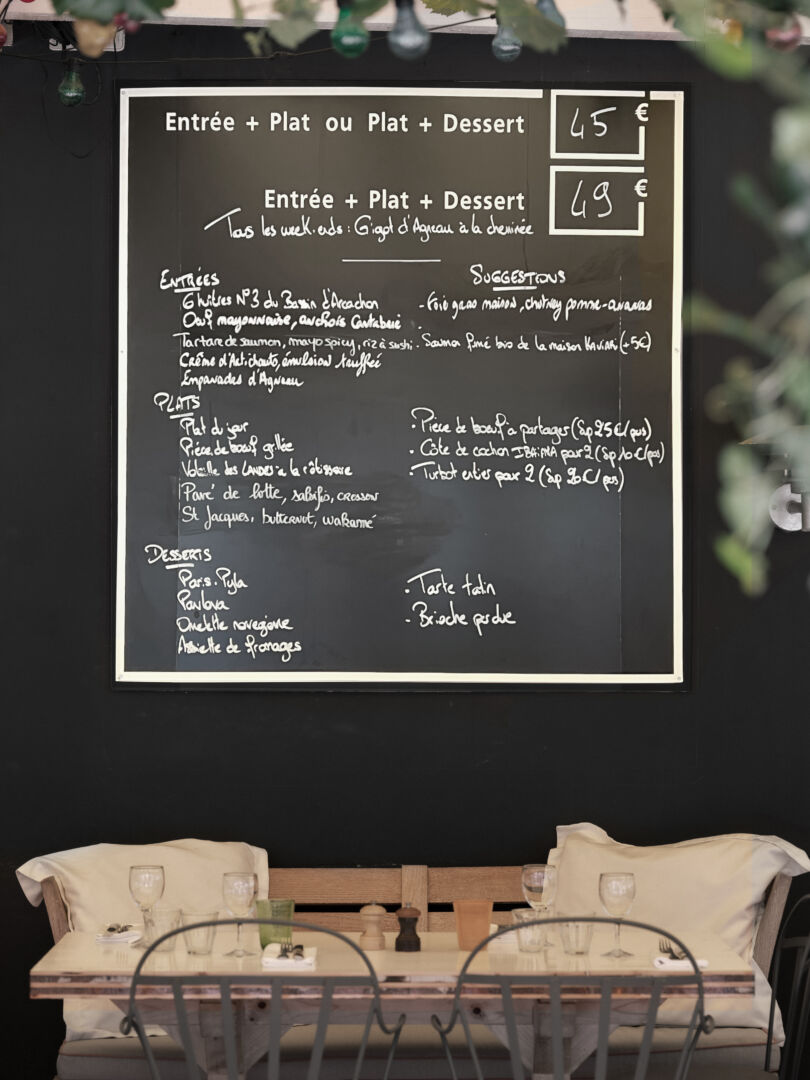 Entrée + Plat ou Plat + Dessert 45 €
Entrée + Plat + Dessert 49 €
Tous les week.ends : Gigot d'Agneau à la cheminée
ENTRÉES
6 huîtres N°3 du Bassin d'Arcachon
Oeuf mayonnaise, anchois Cantabrie
Tartare de saumon, mayo spicy, riz à sushi
Crème d'Artichauts, émulsion truffée
Empanadas d'Agneau
SUGGESTIONS
- Foie gras maison, chutney pomme-ananas
. Saumon fumé bio de la maison KAVIARI (+5€)
PLATS
Plat du jour
Pièce de boeuf grillée
Volaille des LANDES à la rôtisserie
Pavé de lotte, salsifis, cresson
St Jacques, butternut, wakamé
. Pièce de boeuf à partager (Sup 25€/pers)
. Côte de cochon IBAIAMA pour 2 (Sup 10€/pers)
. Turbot entier pour 2 (Sup 20€/pers)
DESSERTS
Paris.Pyla
Pavlova
Omelette norvegienne
Assiette de fromages
. Tarte tatin
- Brioche perdue